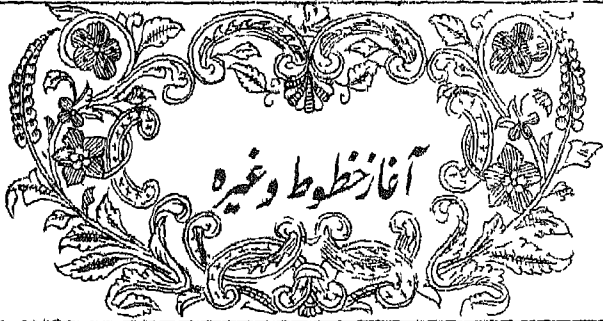 آغاز خطوط وغیرہ